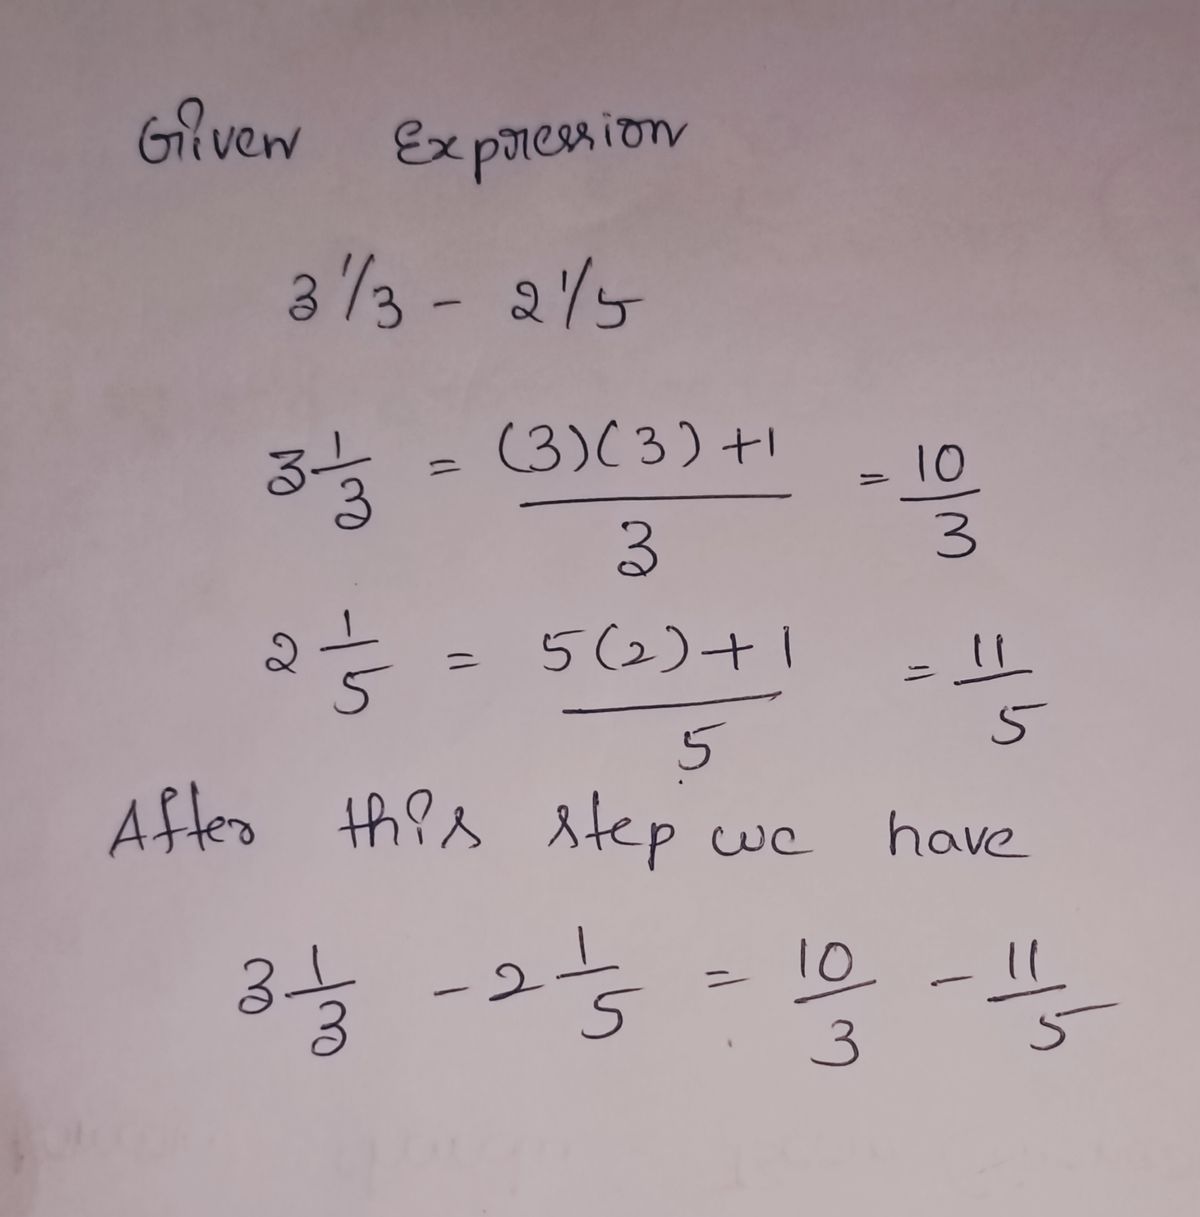 Given Expression
3 1/3 - 2 1/5
3 1/3 = (3)(3)+1/3 = 10/3
2 1/5 = 5(2)+1/5 = 11/5
After this step we have
3 1/3 - 2 1/5 = 10/3 - 11/5